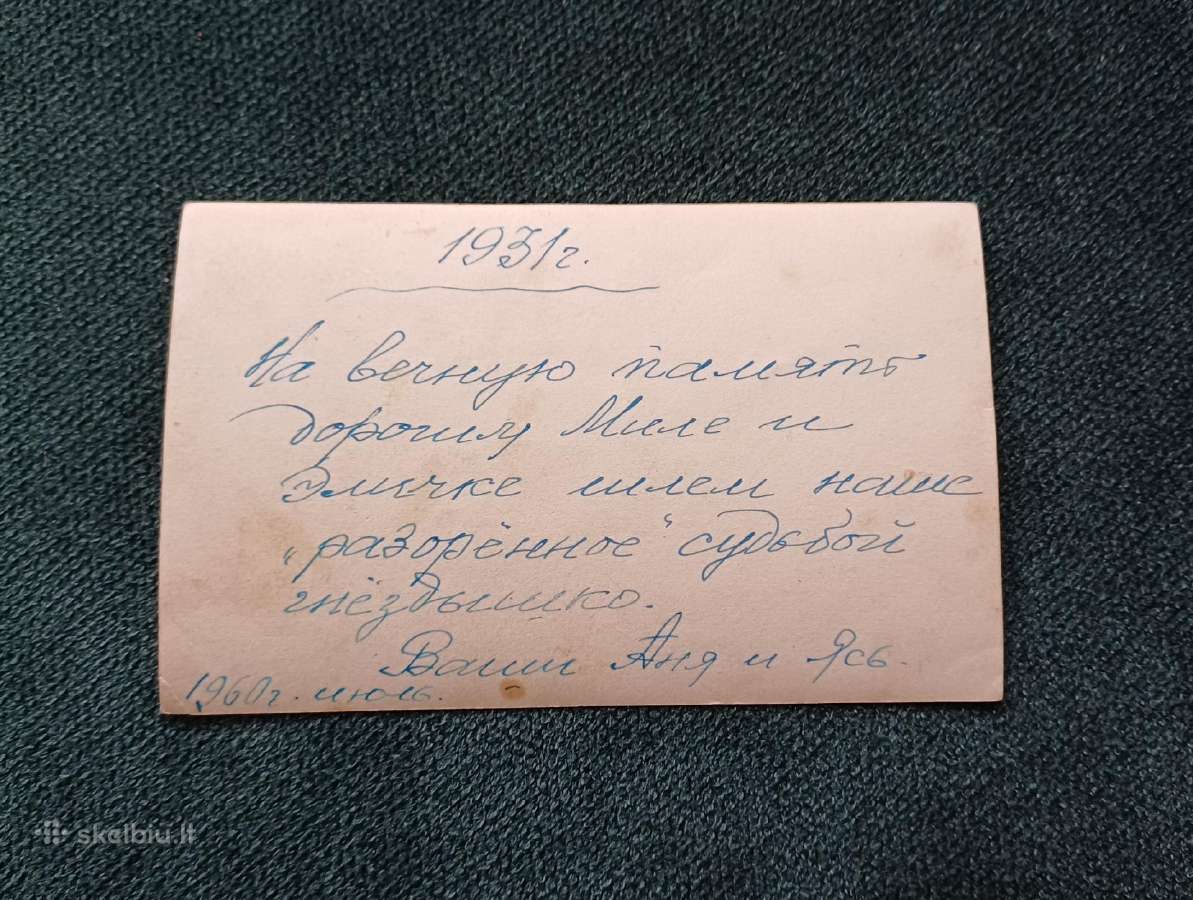 1931г.
На вечную память
дорогим Миле и
Эмичке шлем наше
„разорённое“ судьбой
гнёздышко.
Ваши Аня и Ясь.
1960г. июль.
skelbiu.lt